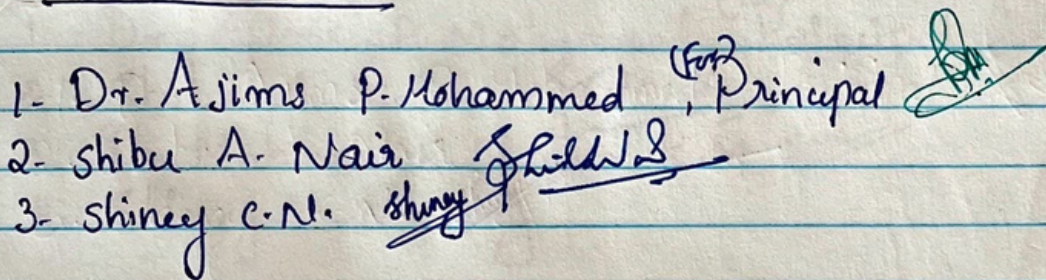 1- Dr. Ajims P. Mohammed, (For) Principal
2- Shibu A. Nair
3- Shiney C.N. Shiney